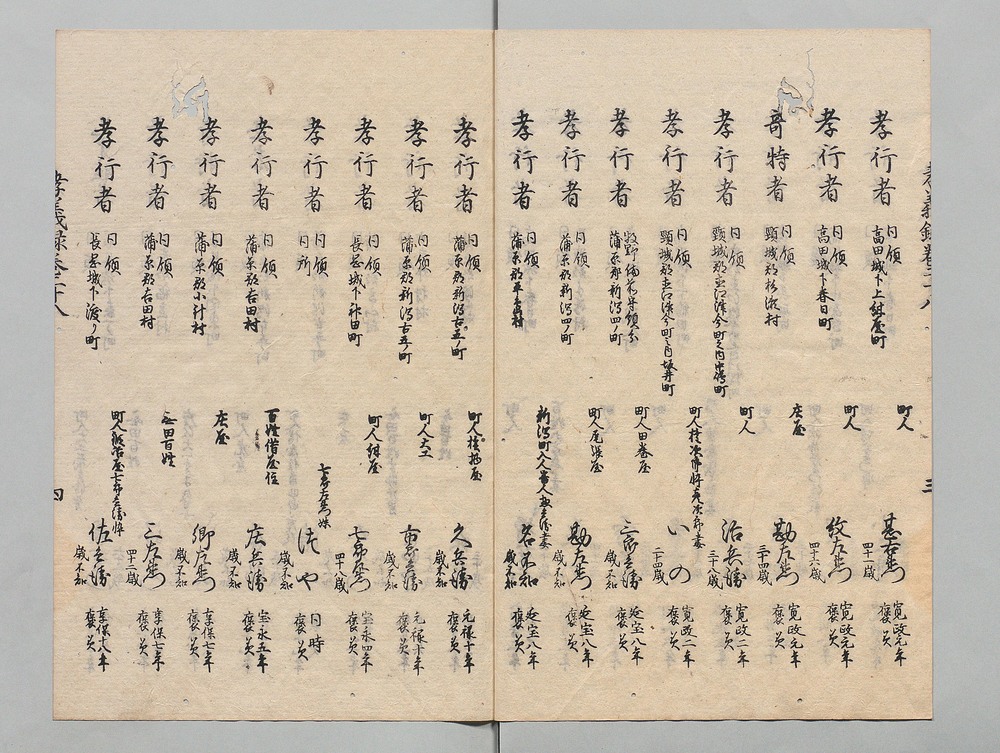 孝義録巻二十八
三
孝行者 同領 高田城下上紺屋町 町人 甚右衛門 四十一歳 寛政元年 褒美
孝行者 同領 高田城下春日町 町人 紋左衛門 四十六歳 寛政元年 褒美
奇特者 同領 頸城郡 村 庄屋 勘左衛門 三十四歳 寛政元年 褒美
孝行者 同領 頸城郡直江津今町之内中嶋町 町人 治兵衛 三十歳 寛政二年 褒美
孝行者 同領 頸城郡直江津今町之内坂井町 町人 いの 二十四歳 寛政二年 褒美
孝行者 牧野備前守領分 蒲原郡新潟四ノ町 町人田巻屋 三郎兵衛 歳不知 延宝八年 褒美
孝行者 同領 蒲原郡新潟四ノ町 町人尾張屋 勘左衛門 歳不知 延宝八年 褒美
孝行者 同領 蒲原郡平嶋村 新潟町 妻 名不知 歳不知 延宝八年 褒美
孝行者 同領 蒲原郡新潟古五ノ町 町人 屋 久兵衛 歳不知 元禄十年 褒美
孝行者 同領 蒲原郡新潟古五ノ町 町人大工 兵衛 歳不知 元禄十年 褒美
孝行者 同領 長岡城下神田町 町人紺屋 七郎左衛門 四十八歳 宝永四年 褒美
孝行者 同領 同所 七郎左衛門妹 はや 歳不知 同時 褒美
孝行者 同領 蒲原郡吉田村 百姓借屋住 庄兵衛 歳不知 宝永五年 褒美
孝行者 同領 蒲原郡小針村 庄屋 郷左衛門 歳不知 享保七年 褒美
孝行者 同領 蒲原郡吉田村 無田百姓 三左衛門 四十二歳 享保七年 褒美
孝行者 同領 長岡城下渡り町 町人鍛冶屋七郎兵衛忰 佐兵衛 歳不知 享保十八年 褒美
孝義録巻二十八
四